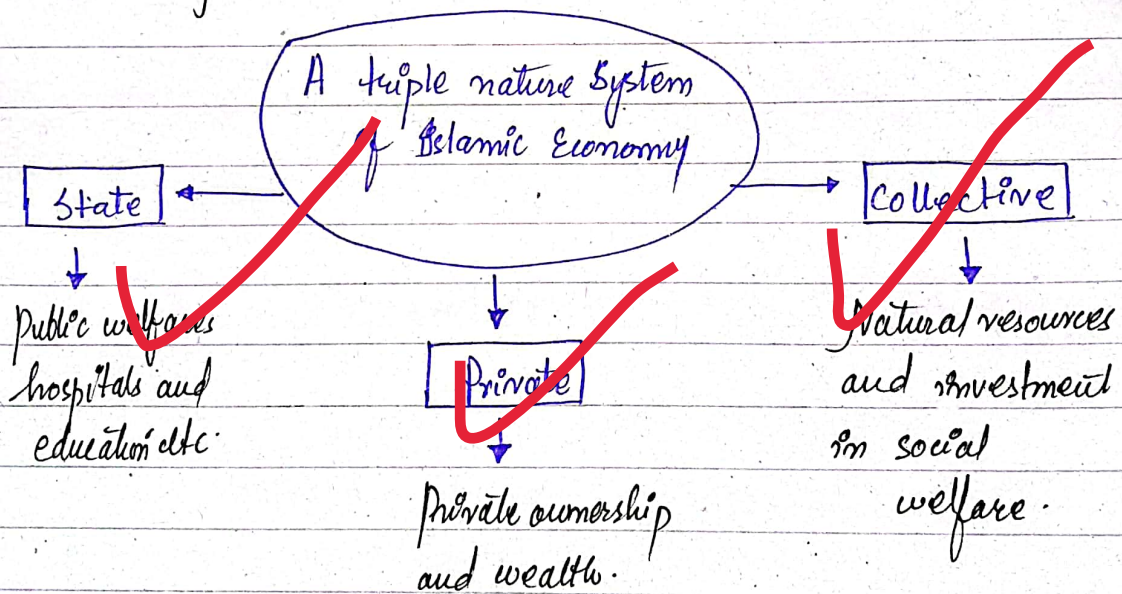 A triple nature System
of Islamic Economy
State
Collective
Public welfares
hospitals and
education etc.
Private
Private ownership
and wealth.
Natural resources
and investment
in social
welfare.